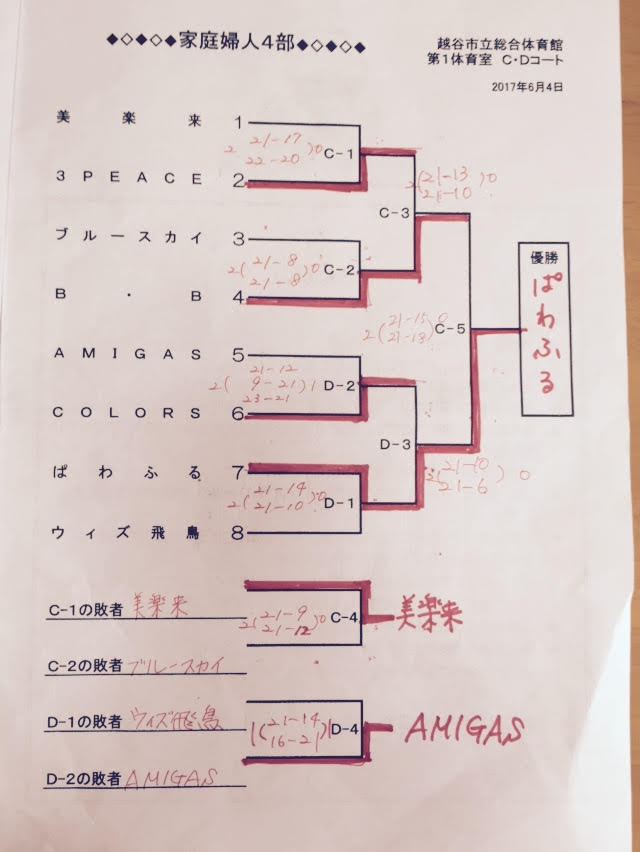 ◆◇◆◇◆家庭婦人4部◆◇◆◇◆
越谷市立総合体育館
第1体育室 C・Dコート
2017年6月4日
美楽来 1
21-17
2 ( ) 0 C-1
22-20
3PEACE 2
2 (21-13) 0
21-10
C-3
ブルースカイ 3
2 (21-8) 0 C-2
21-8
B・B 4
優勝
ぱわふる
2 (21-15) 0 C-5
21-18
AMIGAS 5
21-12
2 ( 9-21 ) 1 D-2
23-21
COLORS 6
D-3
ぱわふる 7
2 (21-14) 0 D-1
21-10
21-10
21-6 ) 0
ウィズ飛鳥 8
C-1の敗者 美楽来
2 (21-9) 0 C-4 美楽来
21-12
C-2の敗者 ブルースカイ
D-1の敗者 ウィズ飛鳥
1 (21-14) 1 D-4 AMIGAS
16-21
D-2の敗者 AMIGAS